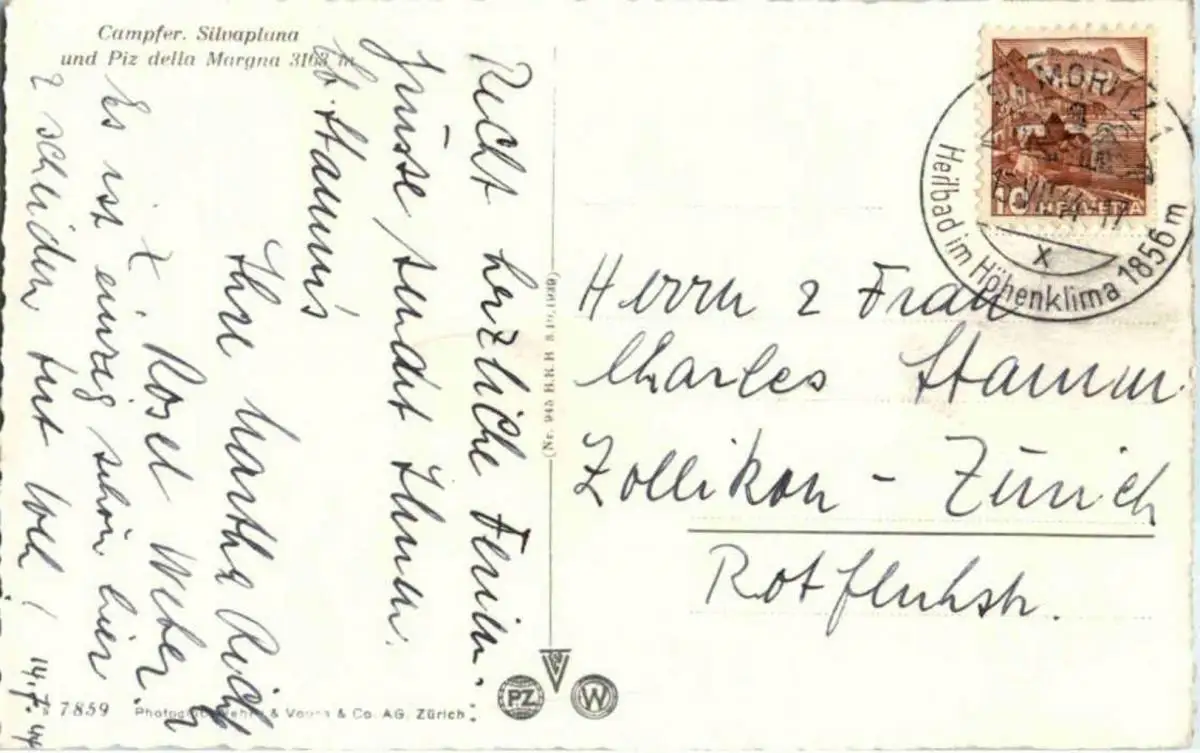 Campfer. Silvaplana
und Piz della Margna 3163 m
Recht herzliche Ferien-
grüsse sendet Ihnen.
b. Stamm's
Ihre Martha
z. Rosel Weber.
Es ist einzig schön hier
& scheiden tut weh!
14.7.44
7859
Photo & Co. AG. Zürich
(Nr. 945 B.R.B. 3.10.1939)
PZ
W
ST. MORITZ 1
15.VII.44-17
X
Heilbad im Höhenklima 1856 m
10 HELVETIA
Herrn & Frau
Charles Stamm
Zollikon - Zürich
Rotfluhstr.